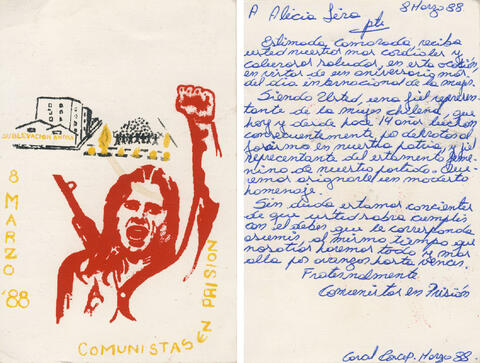 SUBLEVACION
8 MARZO '88
COMUNISTAS EN PRISION
A Alicia Lira 8 Marzo 88
pte
Estimada camarada reciba
usted nuestros mas cordiales y
calurosos saludos, en esta ocasión
en vistas de un aniversario mas,
del día internacional de la mujer.
Siendo Usted, una fiel represen-
tante de la mujer chilena, que
hoy y desde hace 14 años luchan
consecuentemente por derrotar al
fascismo en nuestra patria, y fiel
representante del estamento feme-
nino de nuestro partido. Que-
remos asignarle un modesto
homenaje.
Sin duda estamos concientes
de que usted sabra cumplir
con el deber que le corresponda
asumir, al mismo tiempo que
nosotros haremos todo y mas
alla por avanzar hasta vencer.
Fraternalmente
Comunistas en Prisión
Marzo 88.